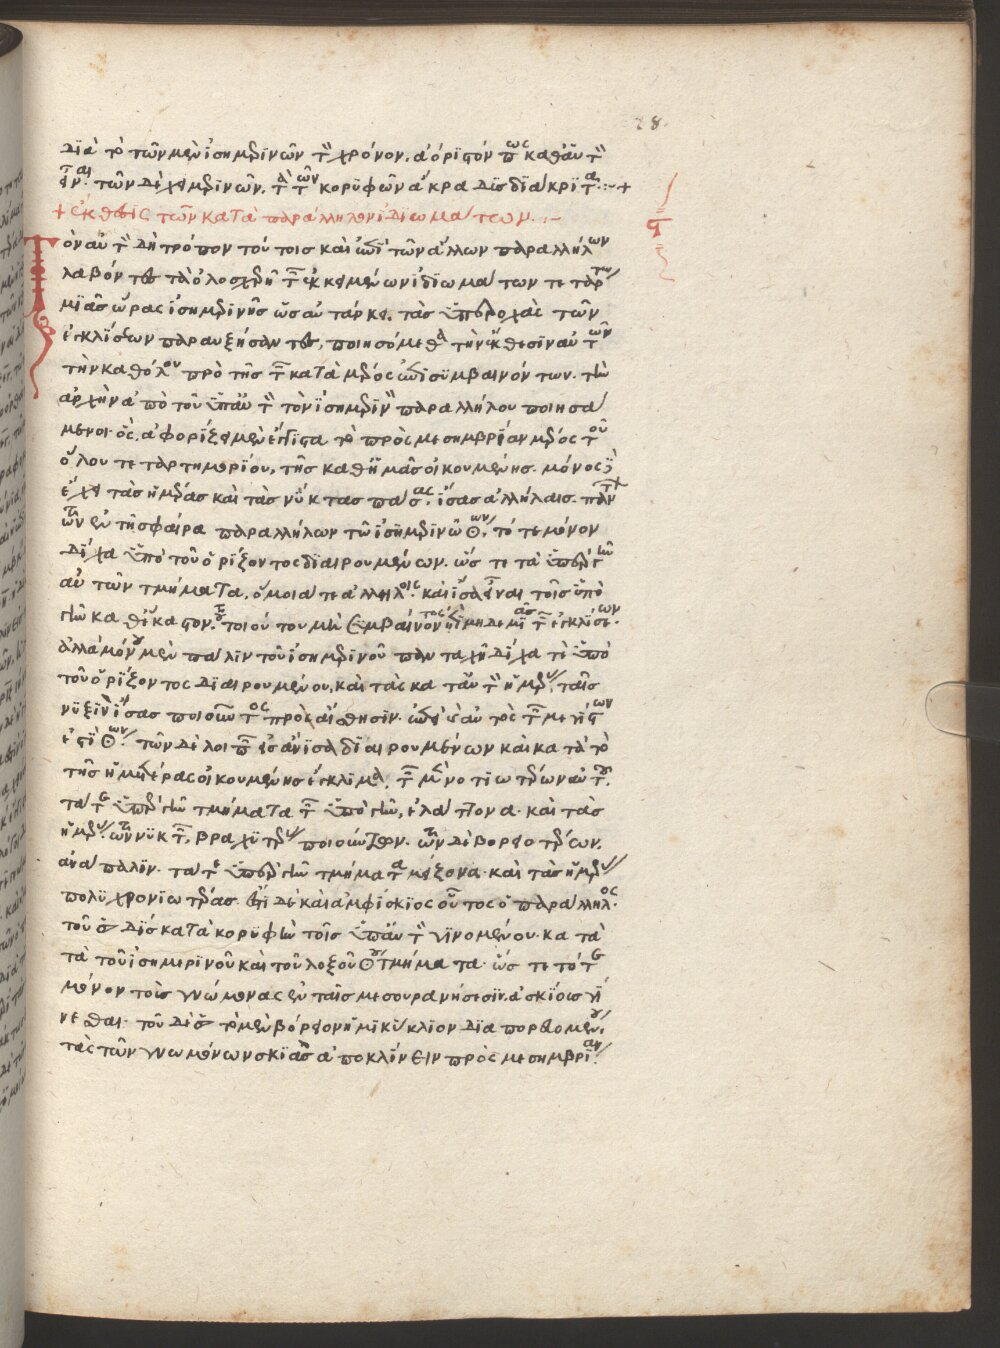 28.
διὰ τὸ τῶν μὲν ἰσημερινῶν τὸν χρόνον, ἀόριστόν πως καθ' αὑτὸν
εἶναι. τῶν δὲ χειμερινῶν, τὰ τῶν κορυφῶν ἄκρα δυσδιάκριτα :~+
+ ἔκθεσις τῶν κατὰ παράλληλον ἰδιωμάτων. :~
ς
Τὸν αὐτὸν δὴ τρόπον τούτοις καὶ ἐπὶ τῶν ἄλλων παραλλήλων
λαβόντες τὰ ὁλοσχερῆ τῶν ἐκκειμένων ἰδιωμάτων τετάρτῳ
μιᾶς ὥρας ἰσημερινῆς ὡς αὐτάρκει, τὰς ὑπεροχὰς τῶν
ἐγκλίσεων παραυξήσαντες, ποιησόμεθα τὴν ἔκθεσιν αὐτῶν
τὴν καθόλου πρὸ τῆς τῶν κατὰ μέρος ἐπισυμβαινόντων. τὴν
ἀρχὴν ἀπὸ τοῦ ὑπ' αὐτὸν τὸν ἰσημερινὸν παραλλήλου ποιησά
μενοι. ὃς, ἀφορίζει μὲν ἔγγιστα τὸ πρὸς μεσημβρίαν μέρος τοῦ
ὅλου τεταρτημορίου, τῆς καθ' ἡμᾶς οἰκουμένης. μόνος δὲ
ἔχει τὰς ἡμέρας καὶ τὰς νύκτας πάσας ἴσας ἀλλήλαις. πάντων
τῶν ἐν τῇ σφαίρᾳ παραλλήλων τῷ ἰσημερινῷ κύκλων, τότε μόνον
δίχα ὑπὸ τοῦ ὁρίζοντος διαιρουμένων. ὥστε τὰ ὑπὲρ γῆν
αὐτῶν τμήματα, ὅμοιά τε ἀλλήλοις καὶ ἴσα εἶναι τοῖς ὑπὸ
γῆν καθ' ἕκαστον. τοῦ τοιούτου μὴ συμβαίνοντος ἐπὶ μηδεμιᾶς τῶν ἐγκλίσεων.
ἀλλὰ μόνου μὲν πάλιν τοῦ ἰσημερινοῦ πανταχῆ δίχα τε ὑπὸ
τοῦ ὁρίζοντος διαιρουμένου, καὶ τὰς κατ' αὐτὸν ἡμέρας, ταῖς
νυξὶν ἴσας ποιοῦντος πρὸς αἴσθησιν. ἐπεὶ καὶ αὐτὸς τῶν μεγίστων
ἐστὶ κύκλων. τῶν δὲ λοιπῶν εἰς ἄνισα διαιρουμένων καὶ κατὰ τὸ
τῆς ἡμετέρας οἰκουμένης ἔγκλιμα, τῶν μὲν νοτιωτέρων αὐτοῦ,
τά τε ὑπὲρ γῆν τμήματα τῶν ὑπὸ γῆν, ἐλάττονα. καὶ τὰς
ἡμέρας τῶν νυκτῶν, βραχυτέρας ποιούντων. τῶν δὲ βορειοτέρων,
ἀνάπαλιν. τά τε ὑπὲρ γῆν τμήματα μείζονα. καὶ τὰς ἡμέρας
πολυχρονιωτέρας. ἔστι δὲ καὶ ἀμφίσκιος οὗτος ὁ παράλληλος.
τοῦ ἡλίου δὶς κατὰ κορυφὴν τοῖς ὑπ' αὐτὸν γινομένου. κατὰ
τὰ τοῦ ἰσημερινοῦ καὶ τοῦ λοξοῦ κύκλου τμήματα. ὥστε τότε
μόνον τοὺς γνώμονας ἐν ταῖς μεσουρανήσεσιν, ἀσκίους γί
νεσθαι. τοῦ δὲ ἡλίου τὸ μὲν βόρειον ἡμικύκλιον διαπορευομένου,
τὰς τῶν γνωμόνων σκιὰς ἀποκλίνειν πρὸς μεσημβρίαν.